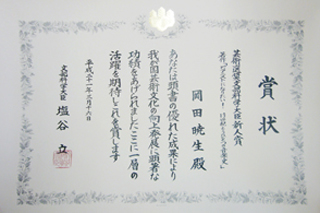 賞状
芸術選奨文部科学大臣新人賞
岡田暁生殿
あなたは頭書の優れた成果により
我が国芸術文化の向上発展に顕著な
功績をあげられましたここに一層の
活躍を期待しこれを賞します
平成二十一年三月十六日
文部科学大臣 塩谷立